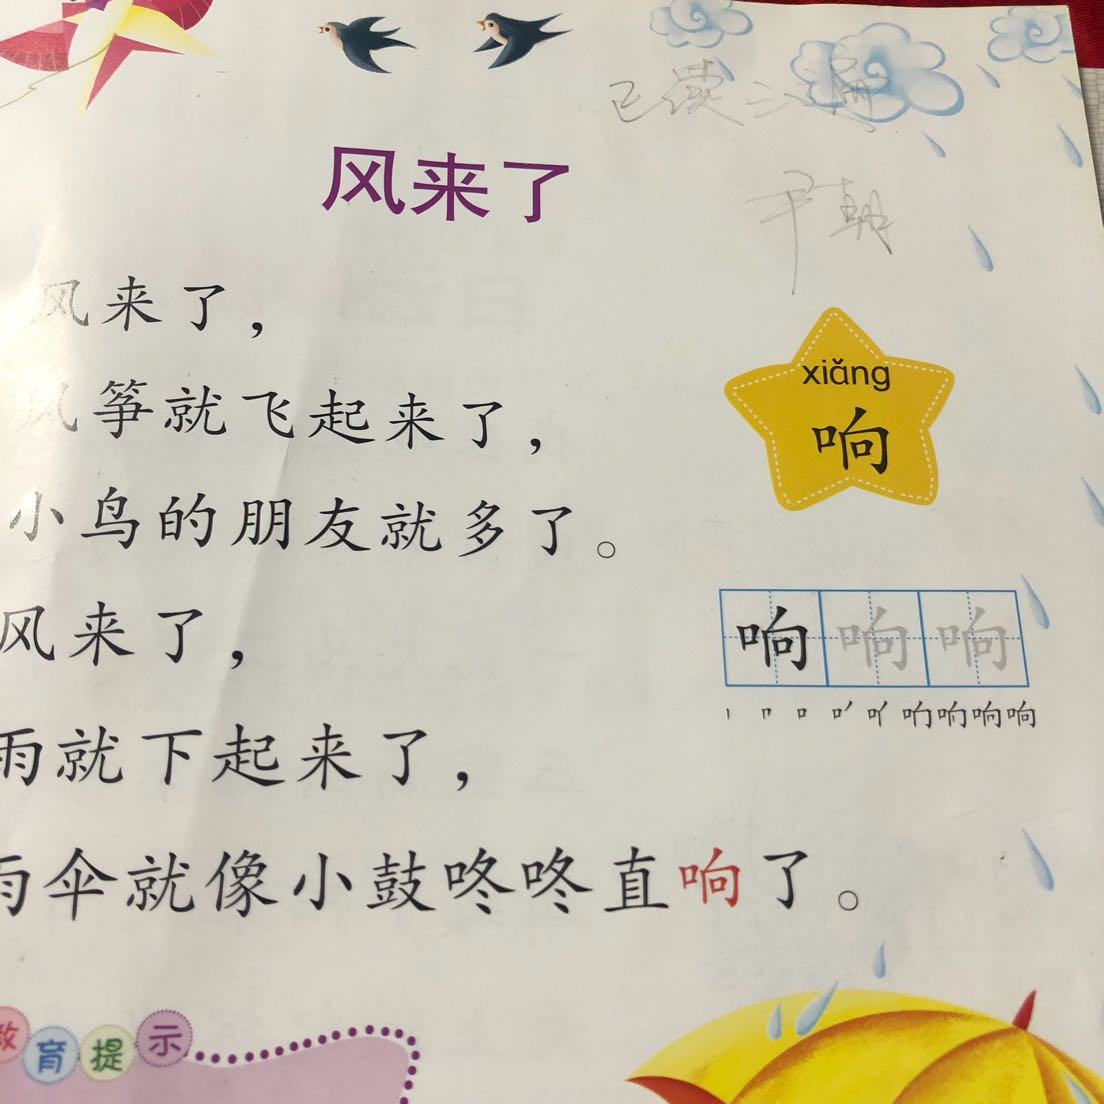 已读三遍
尹朝
风来了
风来了，
风筝就飞起来了，
小鸟的朋友就多了。
风来了，
雨就下起来了，
雨伞就像小鼓咚咚直响了。
xiǎng
响
响 响 响
教育提示